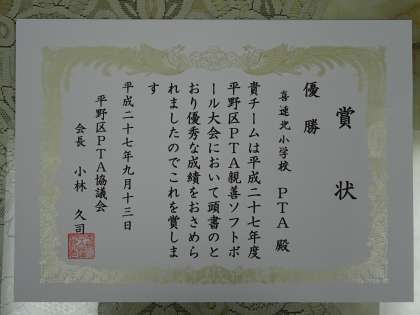 賞状
優勝
喜連北小学校 PTA 殿
貴チームは平成二十七年度
平野区PTA親善ソフトボ
ール大会において頭書のと
おり優秀な成績をおさめら
れましたのでこれを賞しま
す
平成二十七年九月十三日
平野区PTA協議会
会長 小林 久司